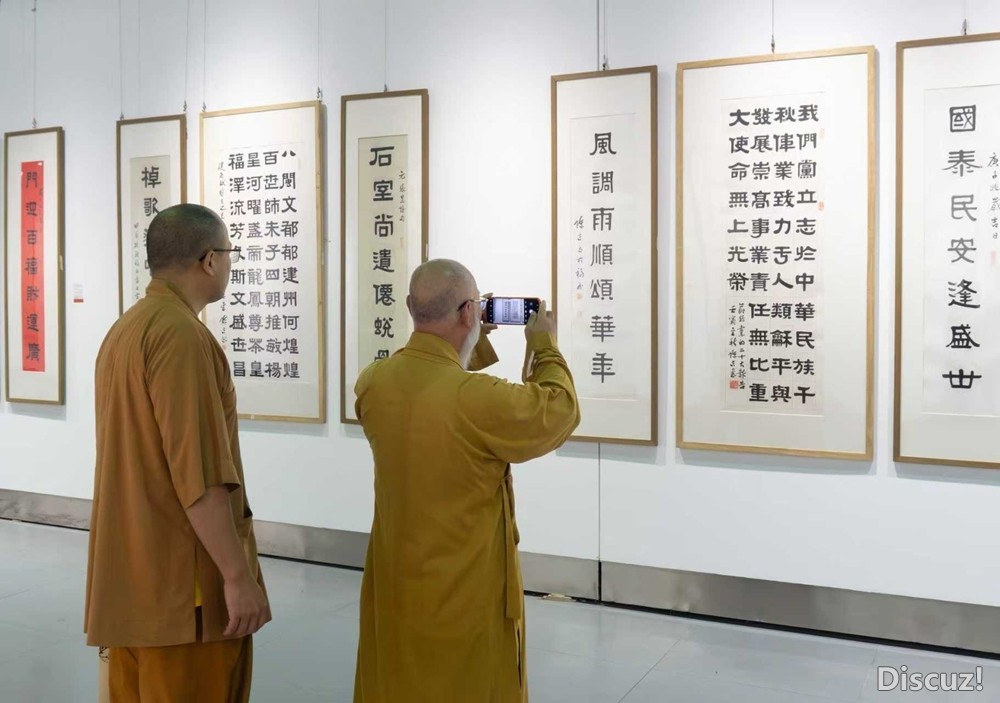 門迎百福財運廣
掉歌
八閩文郁郁建州何煌煌
百世師朱子四朝推敬揚
星河曜盞帝龍鳳尊茶皇
福澤流芳久斯文盛世昌
石室尚遺僊蛻
風調雨順頌華年
我們黨立志於中華民族千
秋偉業致力于人類龢平與
發展崇高事業責任無比重
大使命無上光榮
國泰民安逢盛世
Discuz!